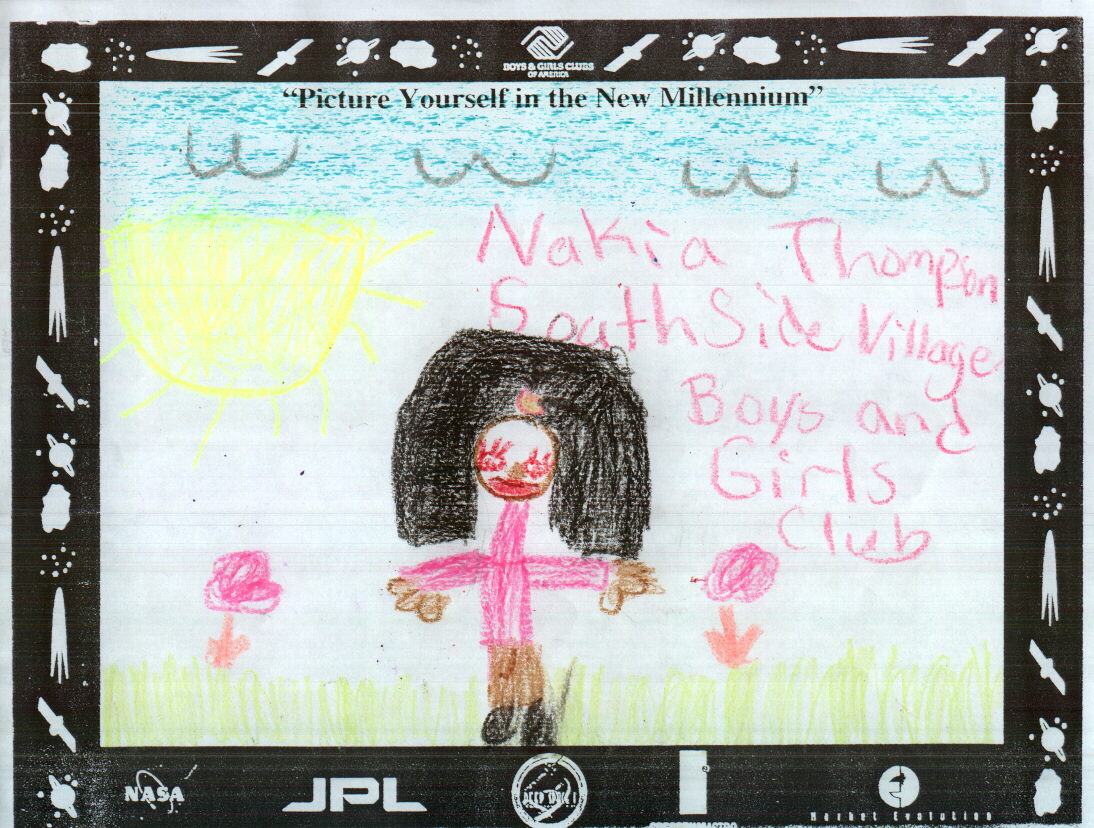 BOYS & GIRLS CLUBS
OF AMERICA
"Picture Yourself in the New Millennium"
Nakia Thompson
SouthSide Village
Boys and
Girls
Club
NASA
JPL
Market Evolution